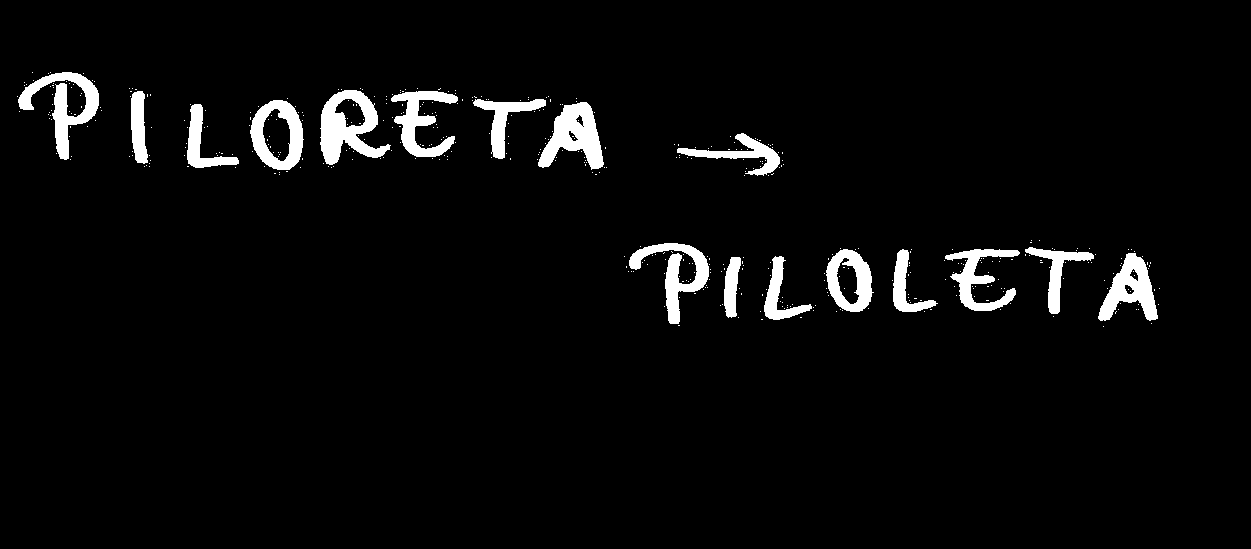 PILORETA →
PILOLETA